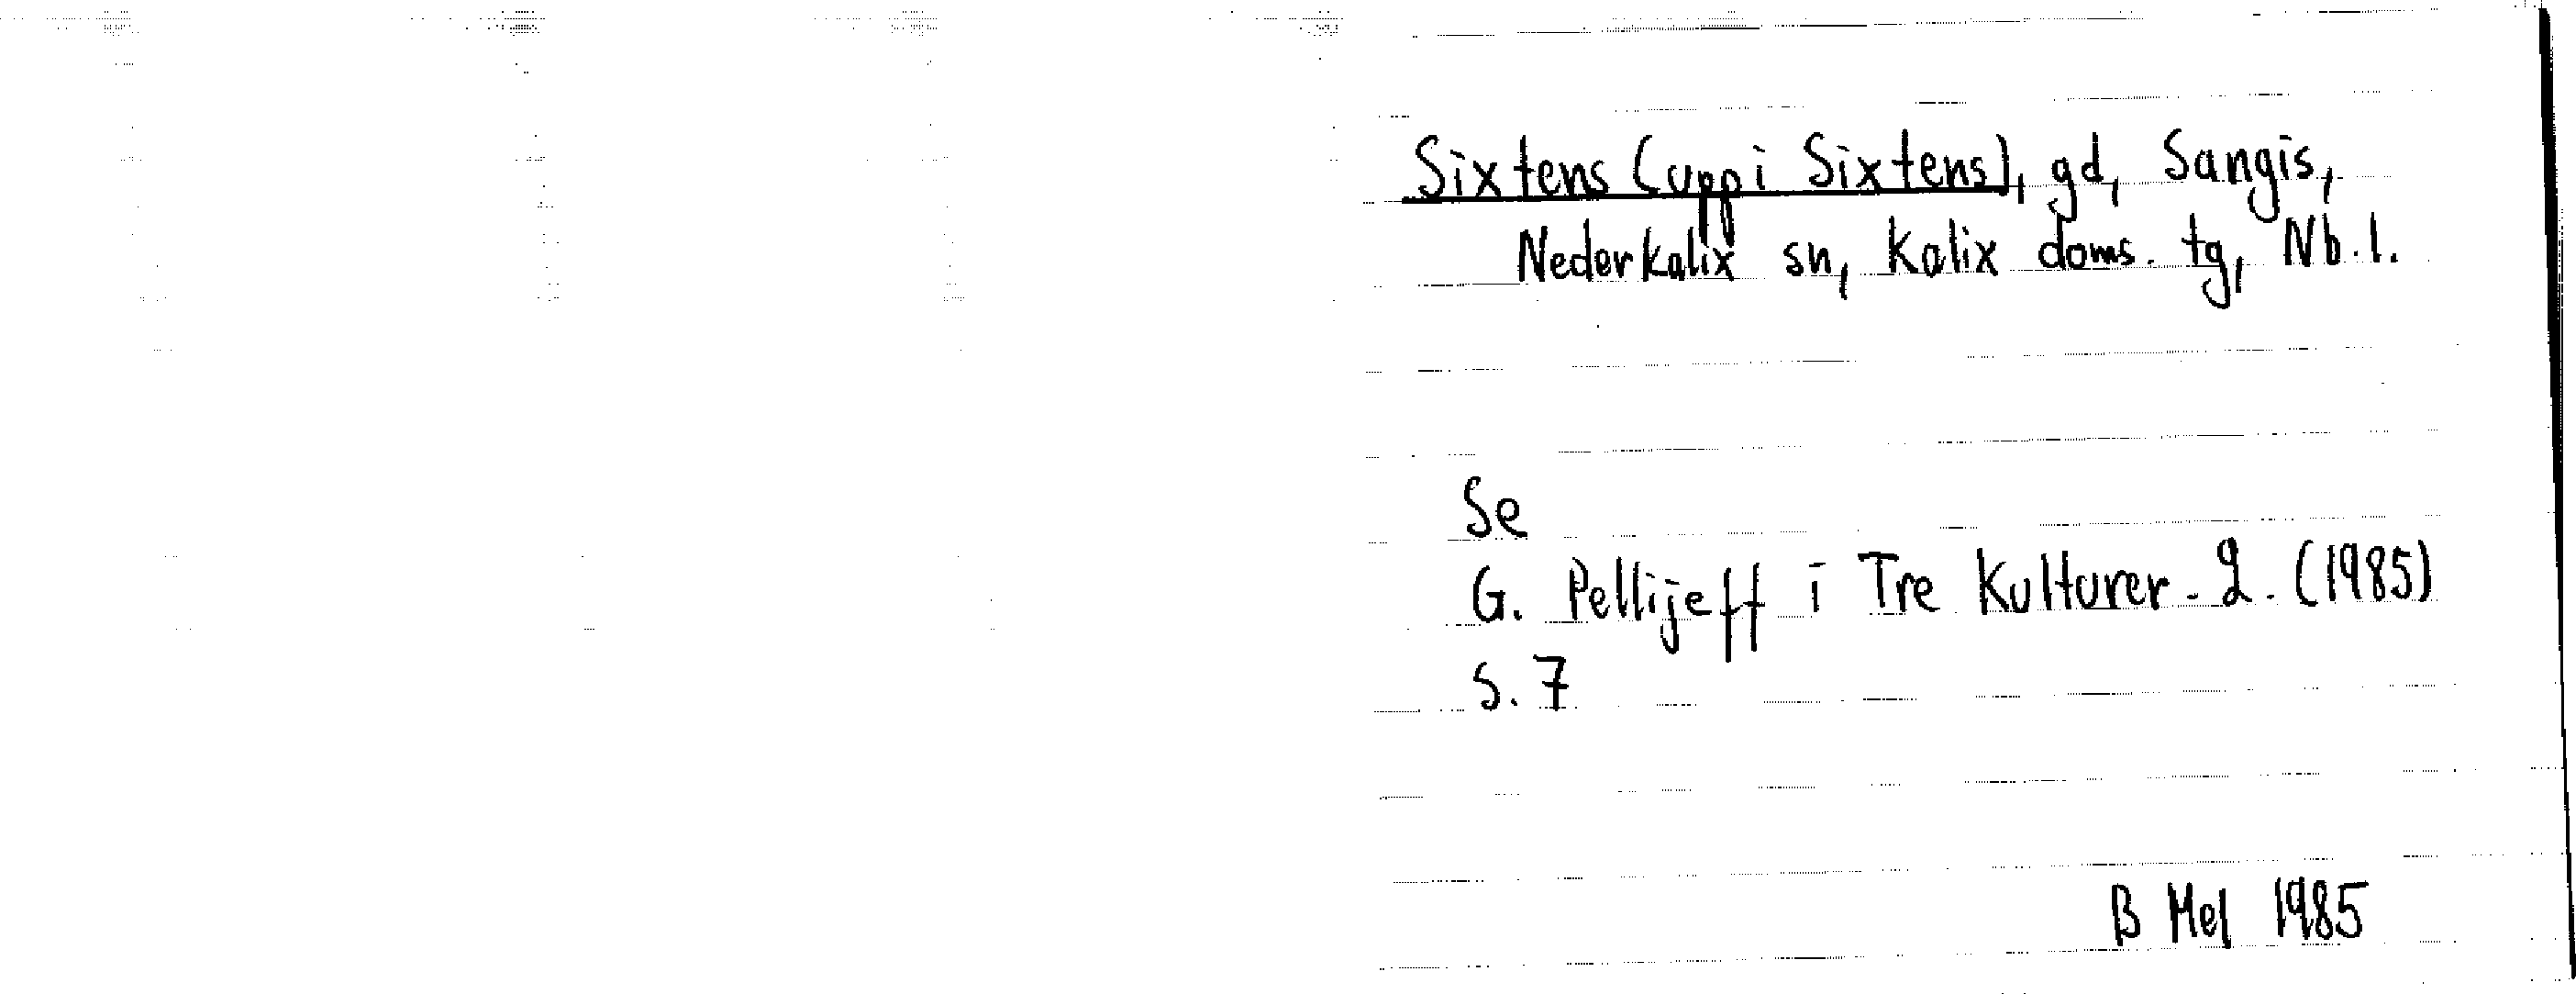 Sixtens (uppi Sixtens), gd, Sangis,
Nederkalix sn, Kalix doms. tg, Nb.l.
Se
G. Pellijeff i Tre Kulturer. 2. (1985)
S. 7
B Mel 1985